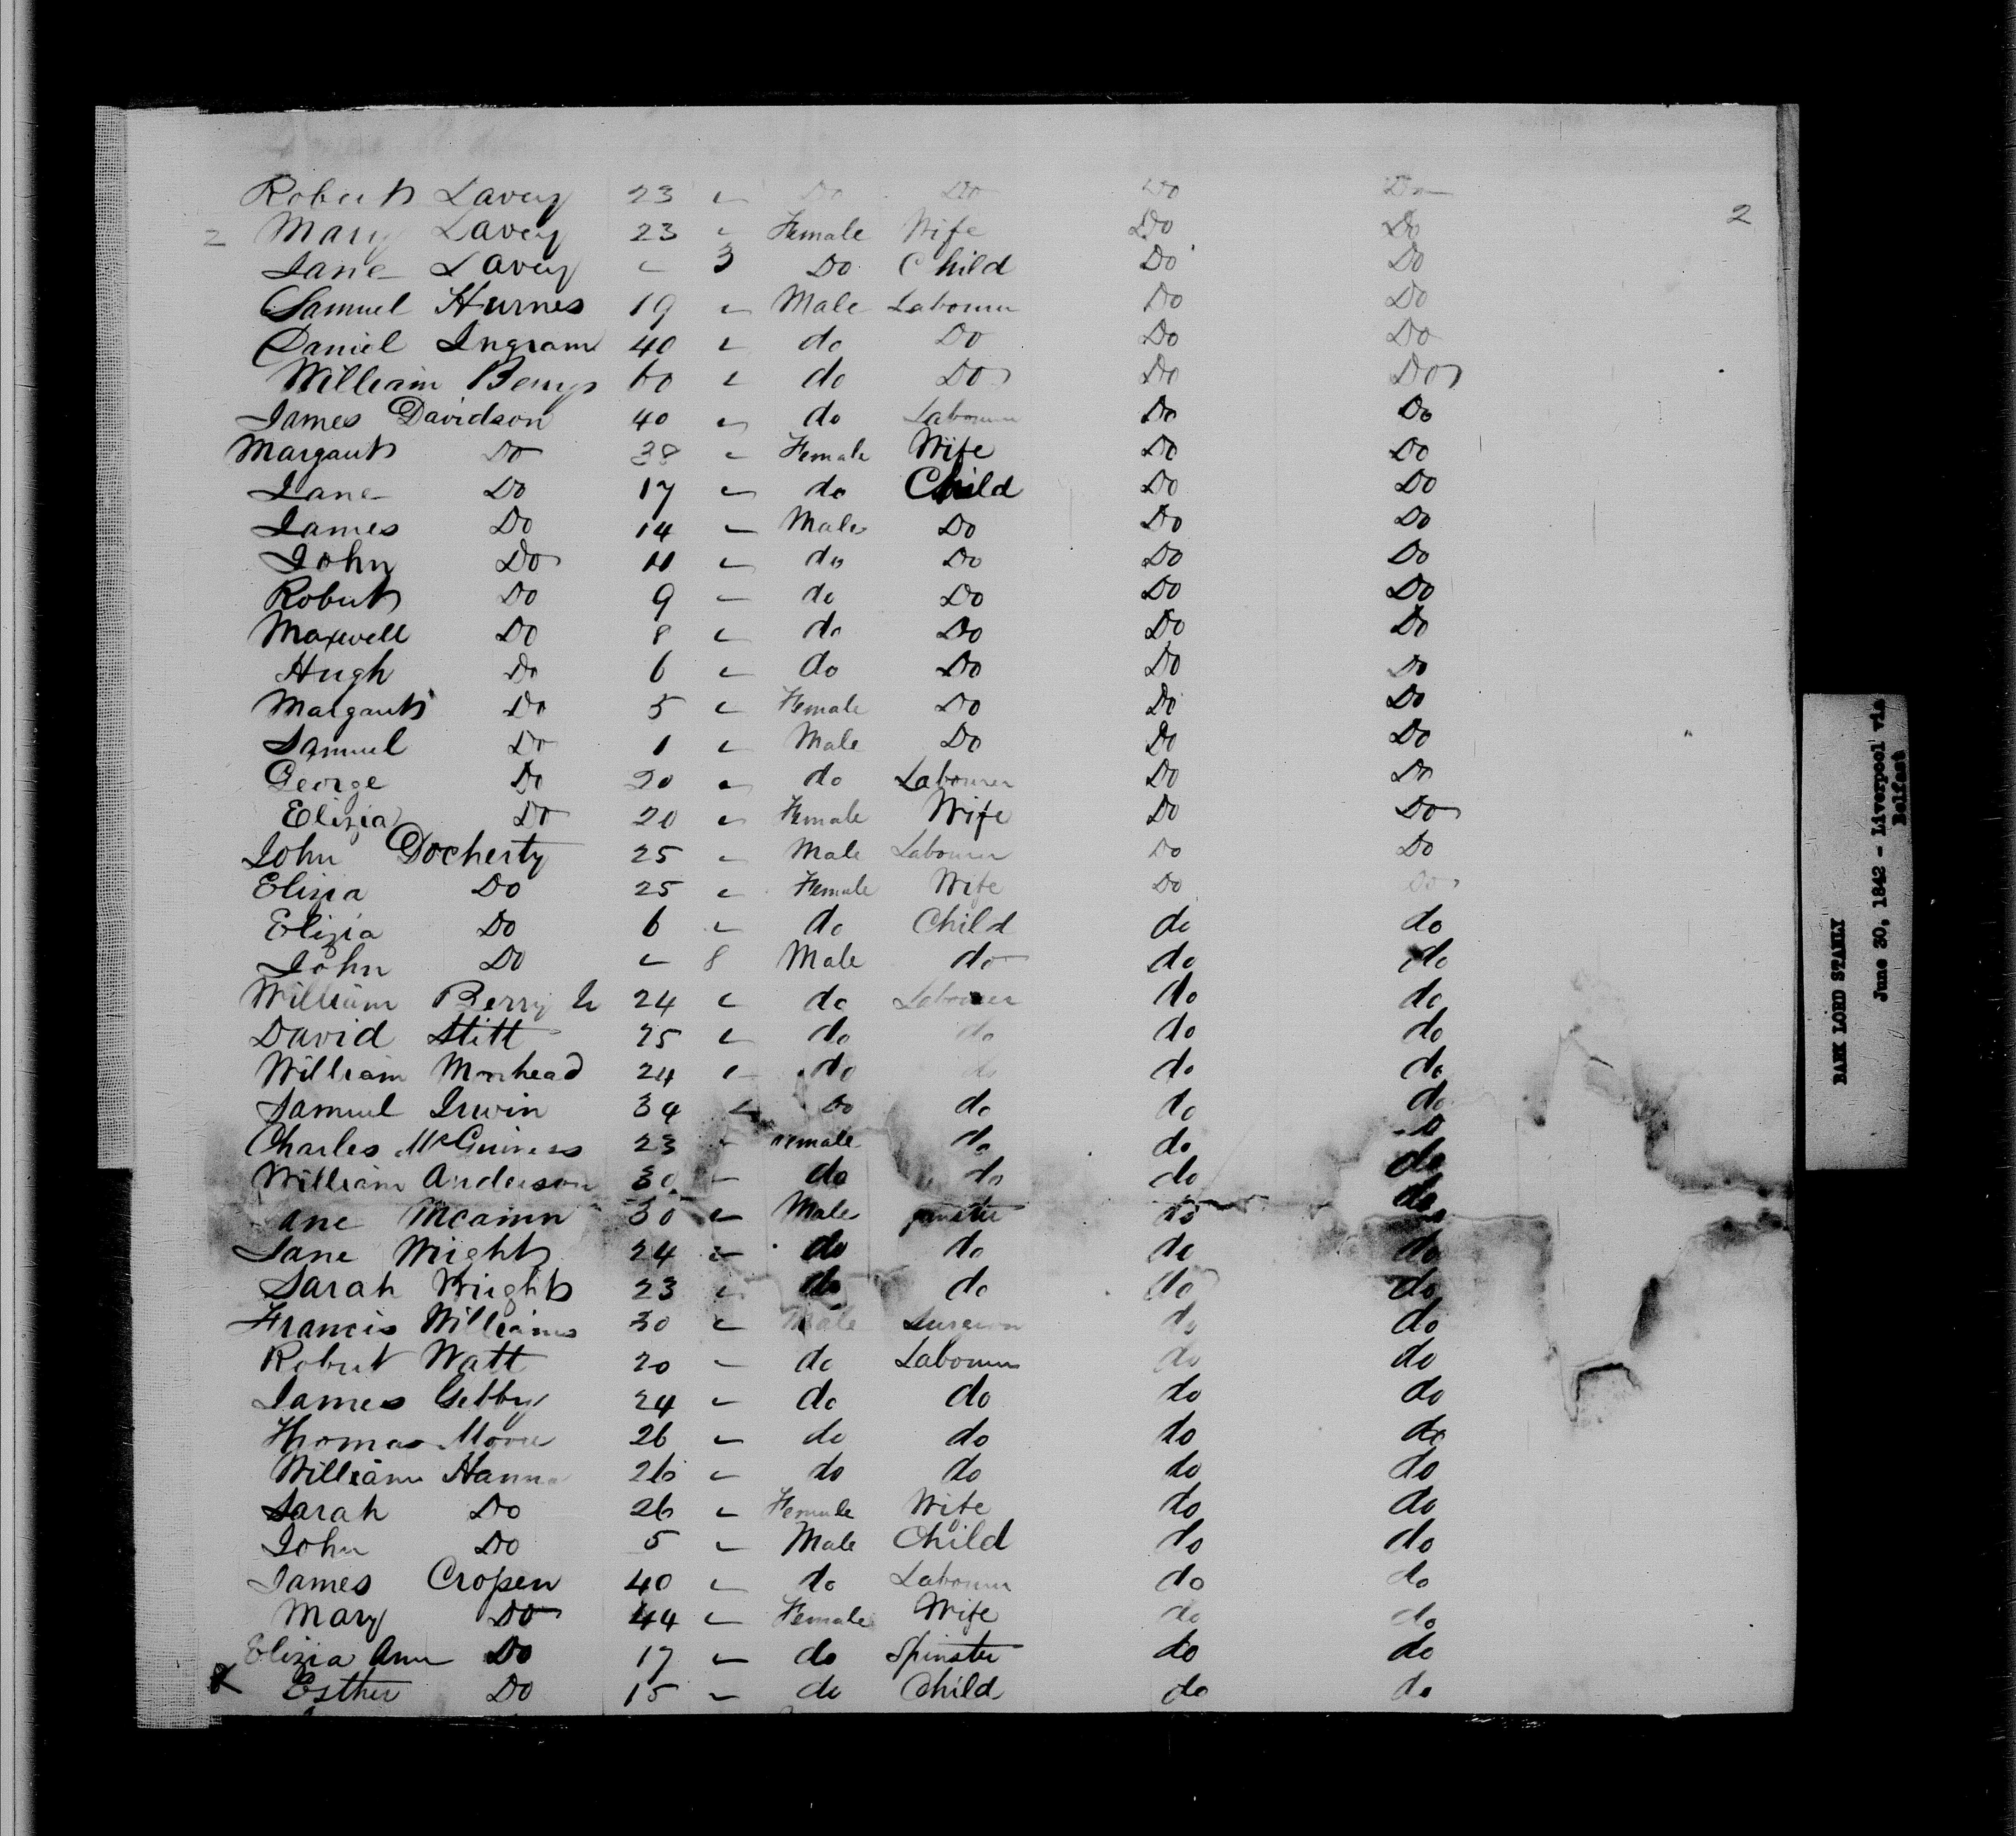 Robert Lavery 23 " Do Do Do Do
2 Mary Lavery 23 " Female Wife Do Do 2
Jane Lavery " 3 Do Child Do Do
Samuel Hurnes 19 " Male Labourer Do Do
Daniel Ingram 40 " do Do Do Do
William 60 " do Do Do Do
James Davidson 40 " do Labourer Do Do
Margaret Do 38 " Female Wife Do Do
Jane Do 17 " do Child Do Do
James Do 14 " Male Do Do Do
John Do 11 " do Do Do Do
Robert Do 9 " do Do Do Do
Maxwell Do 8 " do Do Do Do
Hugh Do 6 " do Do Do Do
Margaret Do 5 " Female Do Do Do
Samuel Do 1 " Male Do Do Do
George Do 20 " do Labourer Do Do
Elizia Do 20 " Female Wife Do Do
John Docherty 25 " Male Labourer Do Do
Elizia Do 25 " Female Wife Do Do
Elizia Do 6 " do Child do do
John Do " 8 Male do do do
William Berry Jr 24 " do Labourer do do
David Stitt 25 " do do do do
William Morhead 24 " do do do do
Samuel Irwin 34 " Do do do do
Charles McGuiness 23 " Female do do do
William Anderson 30 " do do do do
Jane 30 " Male Spinster do do
Jane Wright 24 " do do do do
Sarah Wright 23 " do do do do
Francis Williams 30 " Male Surgeon do do
Robert Watt 20 " do Labourer do do
James Gebby 24 " do do do do
Thomas Moore 26 " do do do do
William Hanna 26 " do do do do
Sarah Do 26 " Female Wife do do
John Do 5 " Male Child do do
James Cropen 40 " do Labourer do do
Mary Do 44 " Female Wife do do
Elizia Ann Do 17 " do Spinster do do
X Esther Do 15 " do Child do do
BARK LORD STANLY
June 30, 1842 - Liverpool via
Belfast